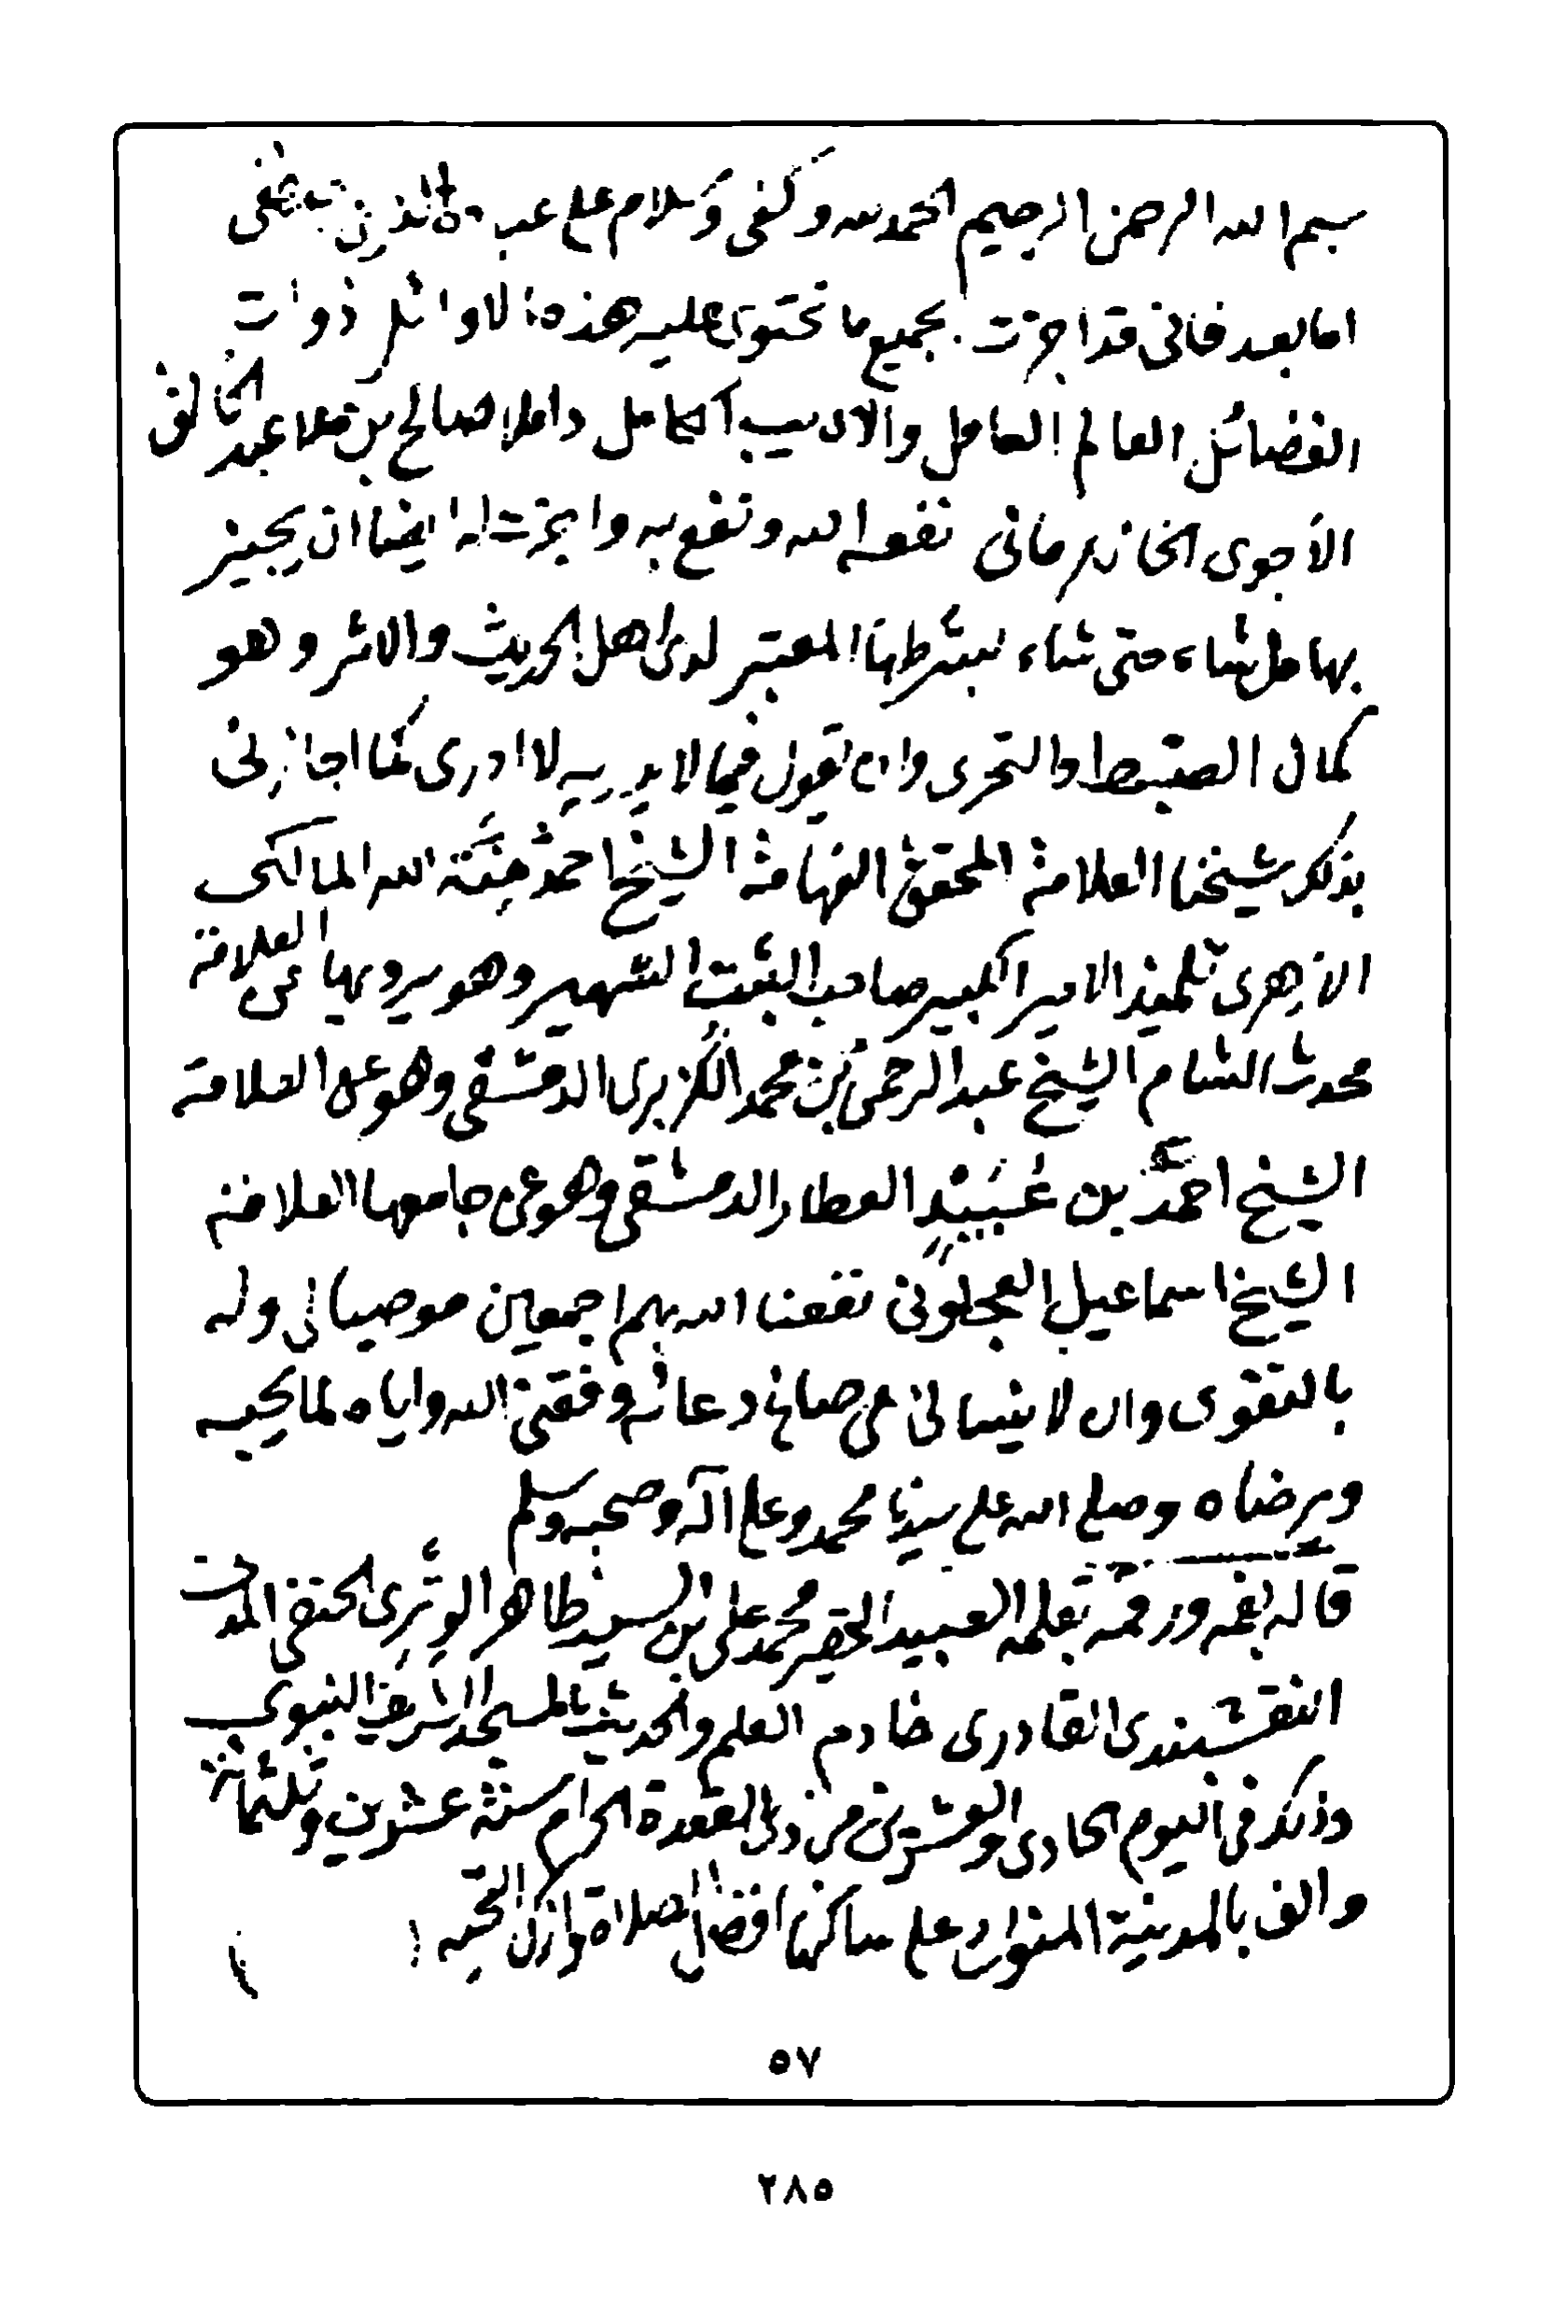 بسم الله الرحمن الرحيم الحمد لله وكفى وسلام على عباده الذين اصطفى
اما بعد فانى قد اجزت بجميع ما تحتوى عليه هذه الاوائل ذوات
الفضائل العالم العامل والاديب الكامل داملا صالح بن ملا عبد الخالق
الأجوى الخانه نفعه الله ونفع به واجزت له ايضا ان يجيز
بها من شاء متى شاء بشرطها المعتبر لدى اهل الحديث والاثر وهو
كمال الضبط والتحرى وان يقول فيما لا يدريه لا ادرى كما اجازنى
بذلك شيخنا العلامة المحقق الفهامة الشيخ احمد منة الله المالكى
الازهرى تلميذ الامير الكبير صاحب الثبت الشهير وهو يرويها عن العلامة
محدث الشام الشيخ عبد الرحمن بن محمد الكزبرى الدمشقى وهو عن العلامة
الشيخ احمد بن عُبَيْدٍ العطار الدمشقى وهو عن جامعها العلامة
الشيخ اسماعيل العجلونى نفعنا الله بهم اجمعين موصيا لى وله
بالتقوى وان لا ينسانى من صالح دعائه وفقنى الله واياه لما يحبه
ويرضاه وصلى الله على سيدنا محمد وعلى آله وصحبه وسلم
قاله بفمه ورقمه بقلمه العبيد الحقير محمد على ابن السيد ظاهر الوِترى الحنفى المدنى
النقشبندى القادرى خادم العلم والحديث بالمسجد الشريف النبوى
وذلك فى اليوم الحادى والعشرين من ذى القعدة الحرام سنة عشرين وثلثمائة
والف بالمدينة المنورة على ساكنها افضل الصلاة وازكى التحية
٥٧
٢٨٥